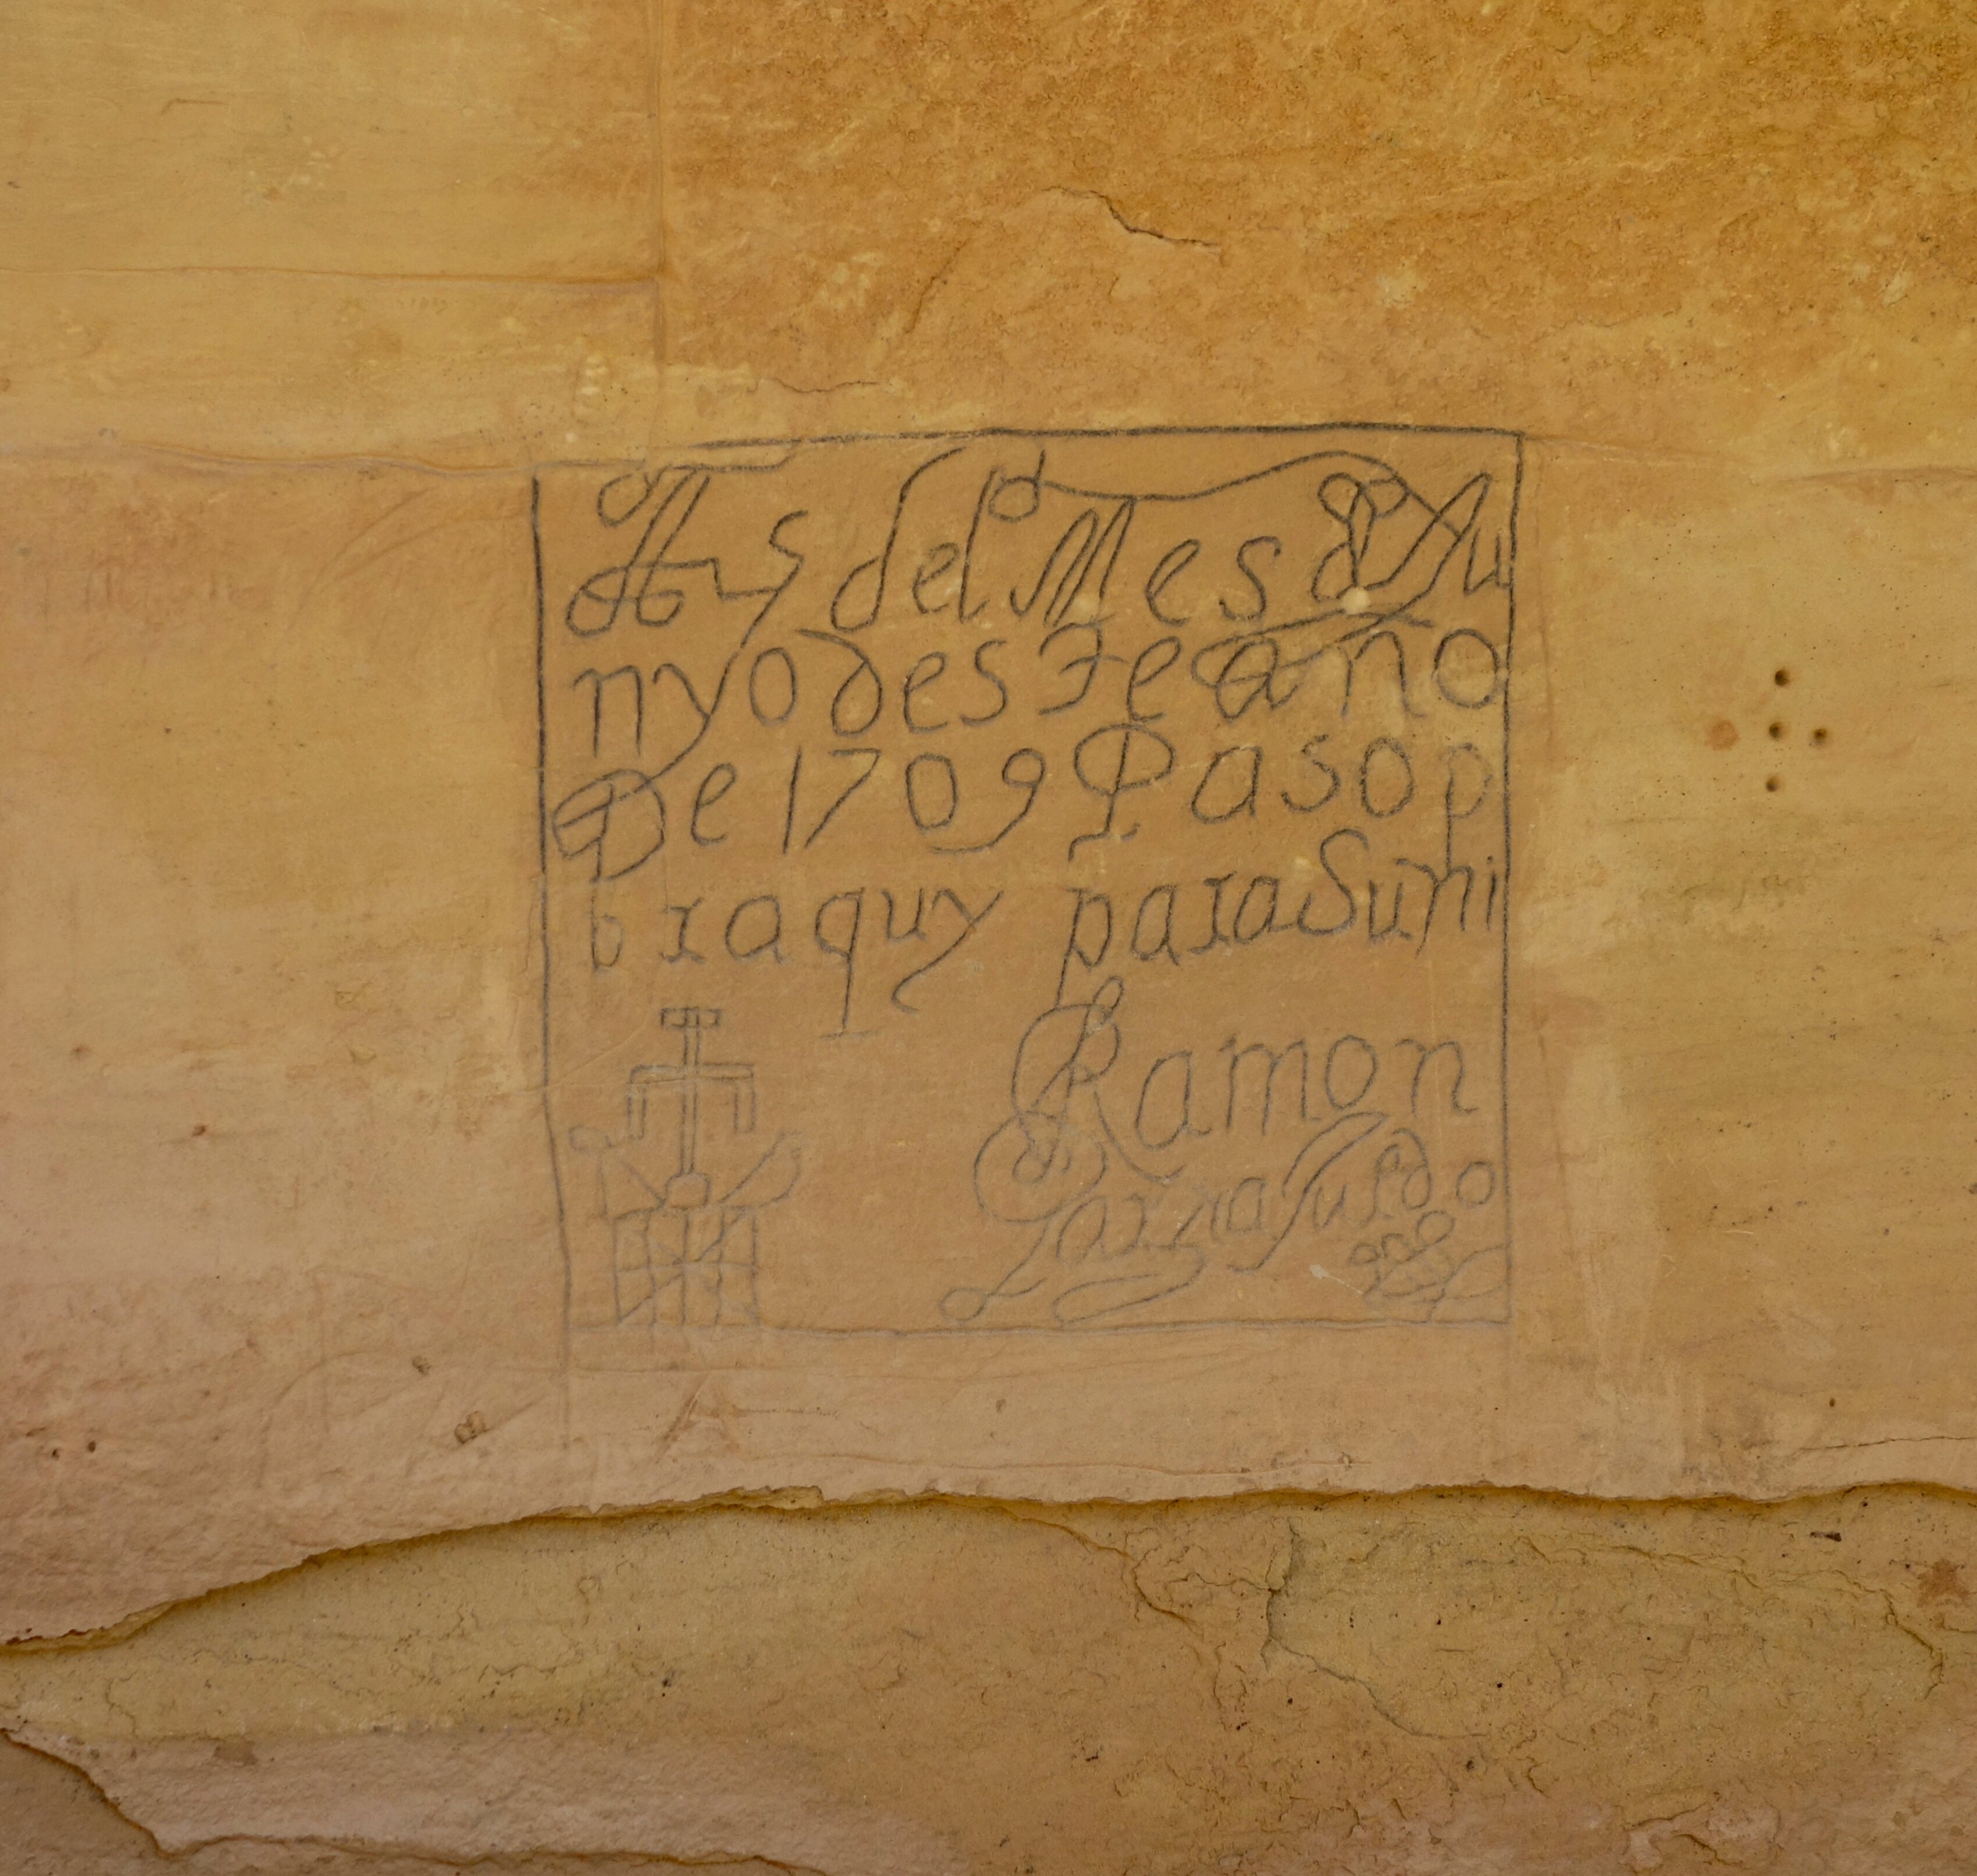 A 5 del Mes d Ju
nyo deste año
De 1709 Paso p
or aquy para Suñi
Ramon
Garsia Jurado